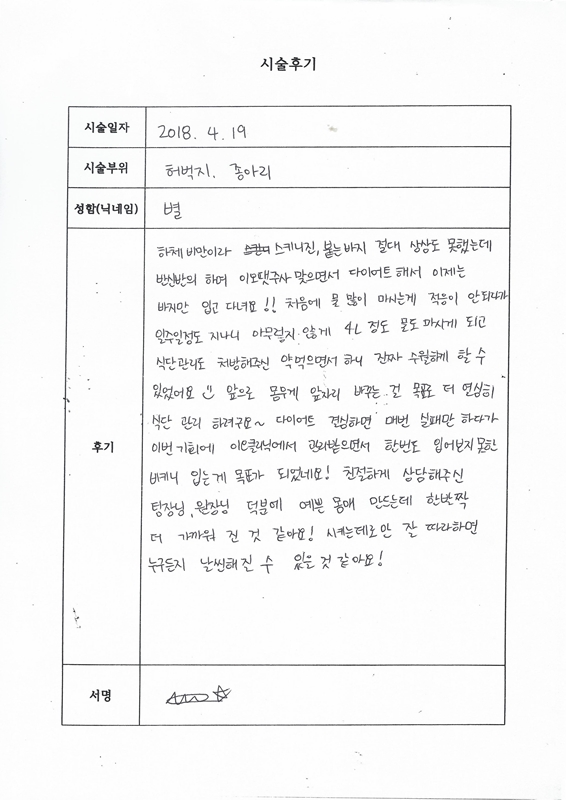 시술후기
시술일자 2018. 4. 19
시술부위 허벅지, 종아리
성함(닉네임) 별
후기
하체 비만이라 스키니진, 붙는바지 절대 상상도 못했는데
반신반의 하며 이모땟주사 맞으면서 다이어트 해서 이제는
바지만 입고 다녀요!! 처음에 물 많이 마시는게 적응이 안되다가
일주일정도 지나니 아무렇지 않게 4L 정도 물도 마시게 되고
식단관리도 처방해주신 약먹으면서 하니 진짜 수월하게 할 수
있었어요 앞으로 몸무게 앞자리 바꾸는 걸 목표로 더 열심히
식단 관리 하려구요~ 다이어트 결심하면 매번 실패만 하다가
이번 기회에 이요클리닉에서 관리받으면서 한번도 입어보지 못한
비키니 입는게 목표가 되었네요! 친절하게 상담해주신
팀장님, 원장님 덕분에 예쁜 몸매 만드는데 한발짝
더 가까워 진 것 같아요! 시키는데로만 잘 따라하면
누구든지 날씬해진 수 있을 것 같아요!
서명